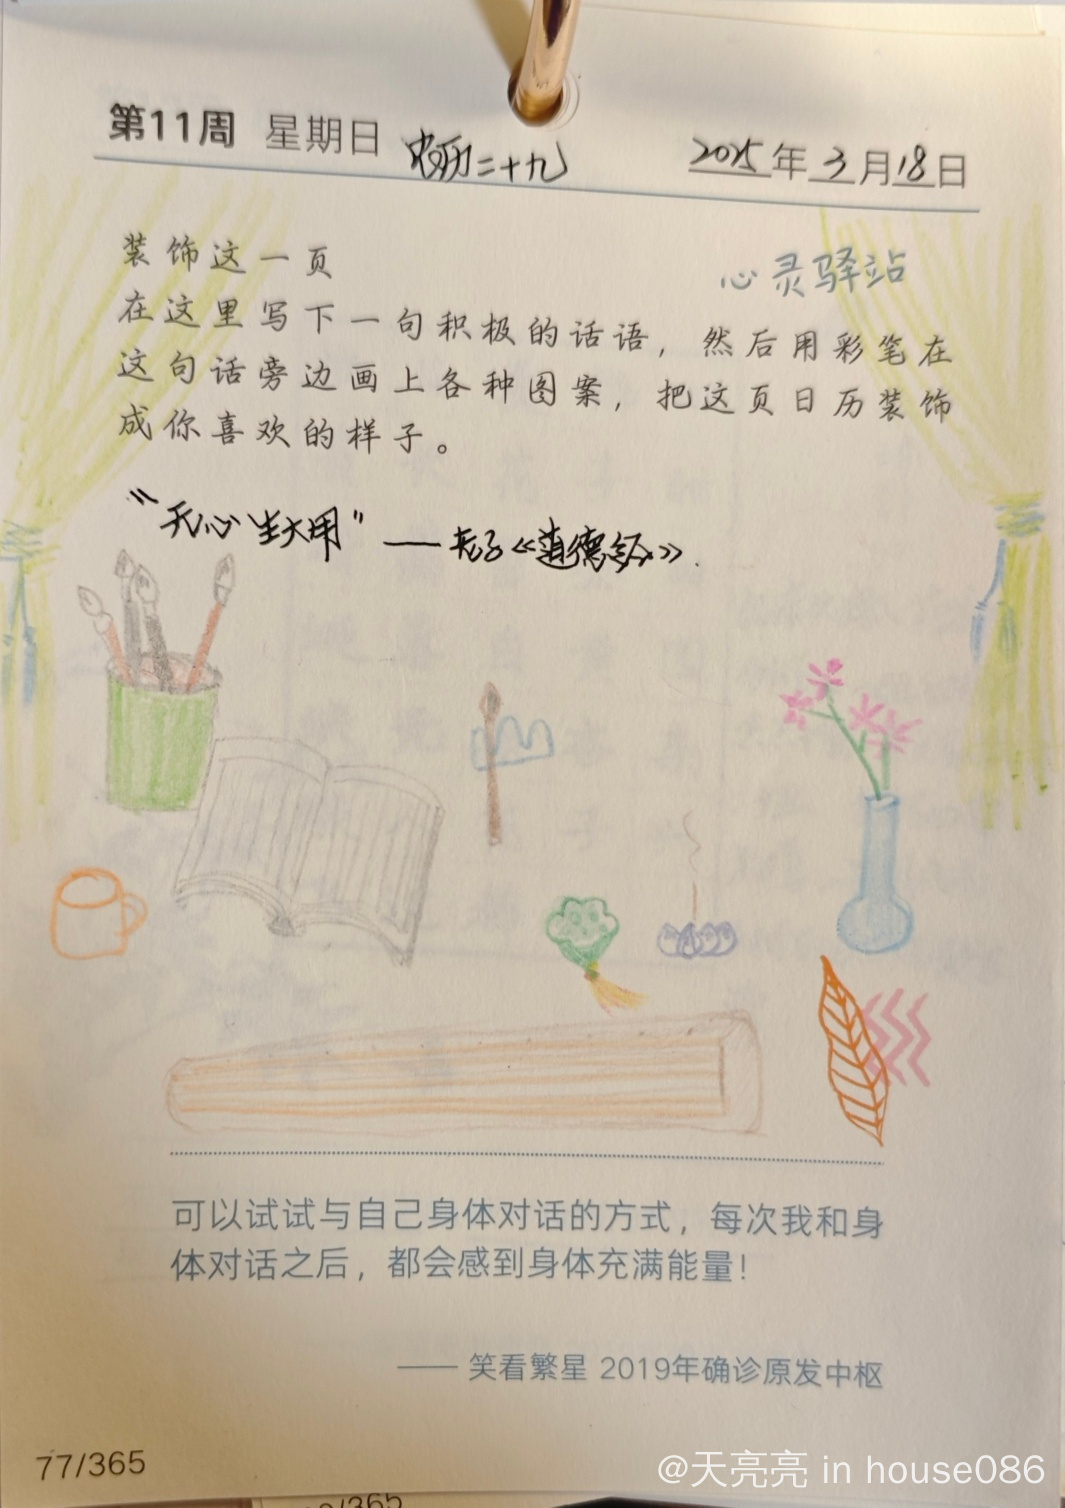 第11周 星期日 农历二十九 2025年3月18日
心灵驿站
装饰这一页
在这里写下一句积极的话语，然后用彩笔在
这句话旁边画上各种图案，把这页日历装饰
成你喜欢的样子。
“无心生大用”——老子《道德经》.
可以试试与自己身体对话的方式，每次我和身
体对话之后，都会感到身体充满能量！
—— 笑看繁星 2019年确诊原发中枢
77/365
/365
@天亮亮 in house086